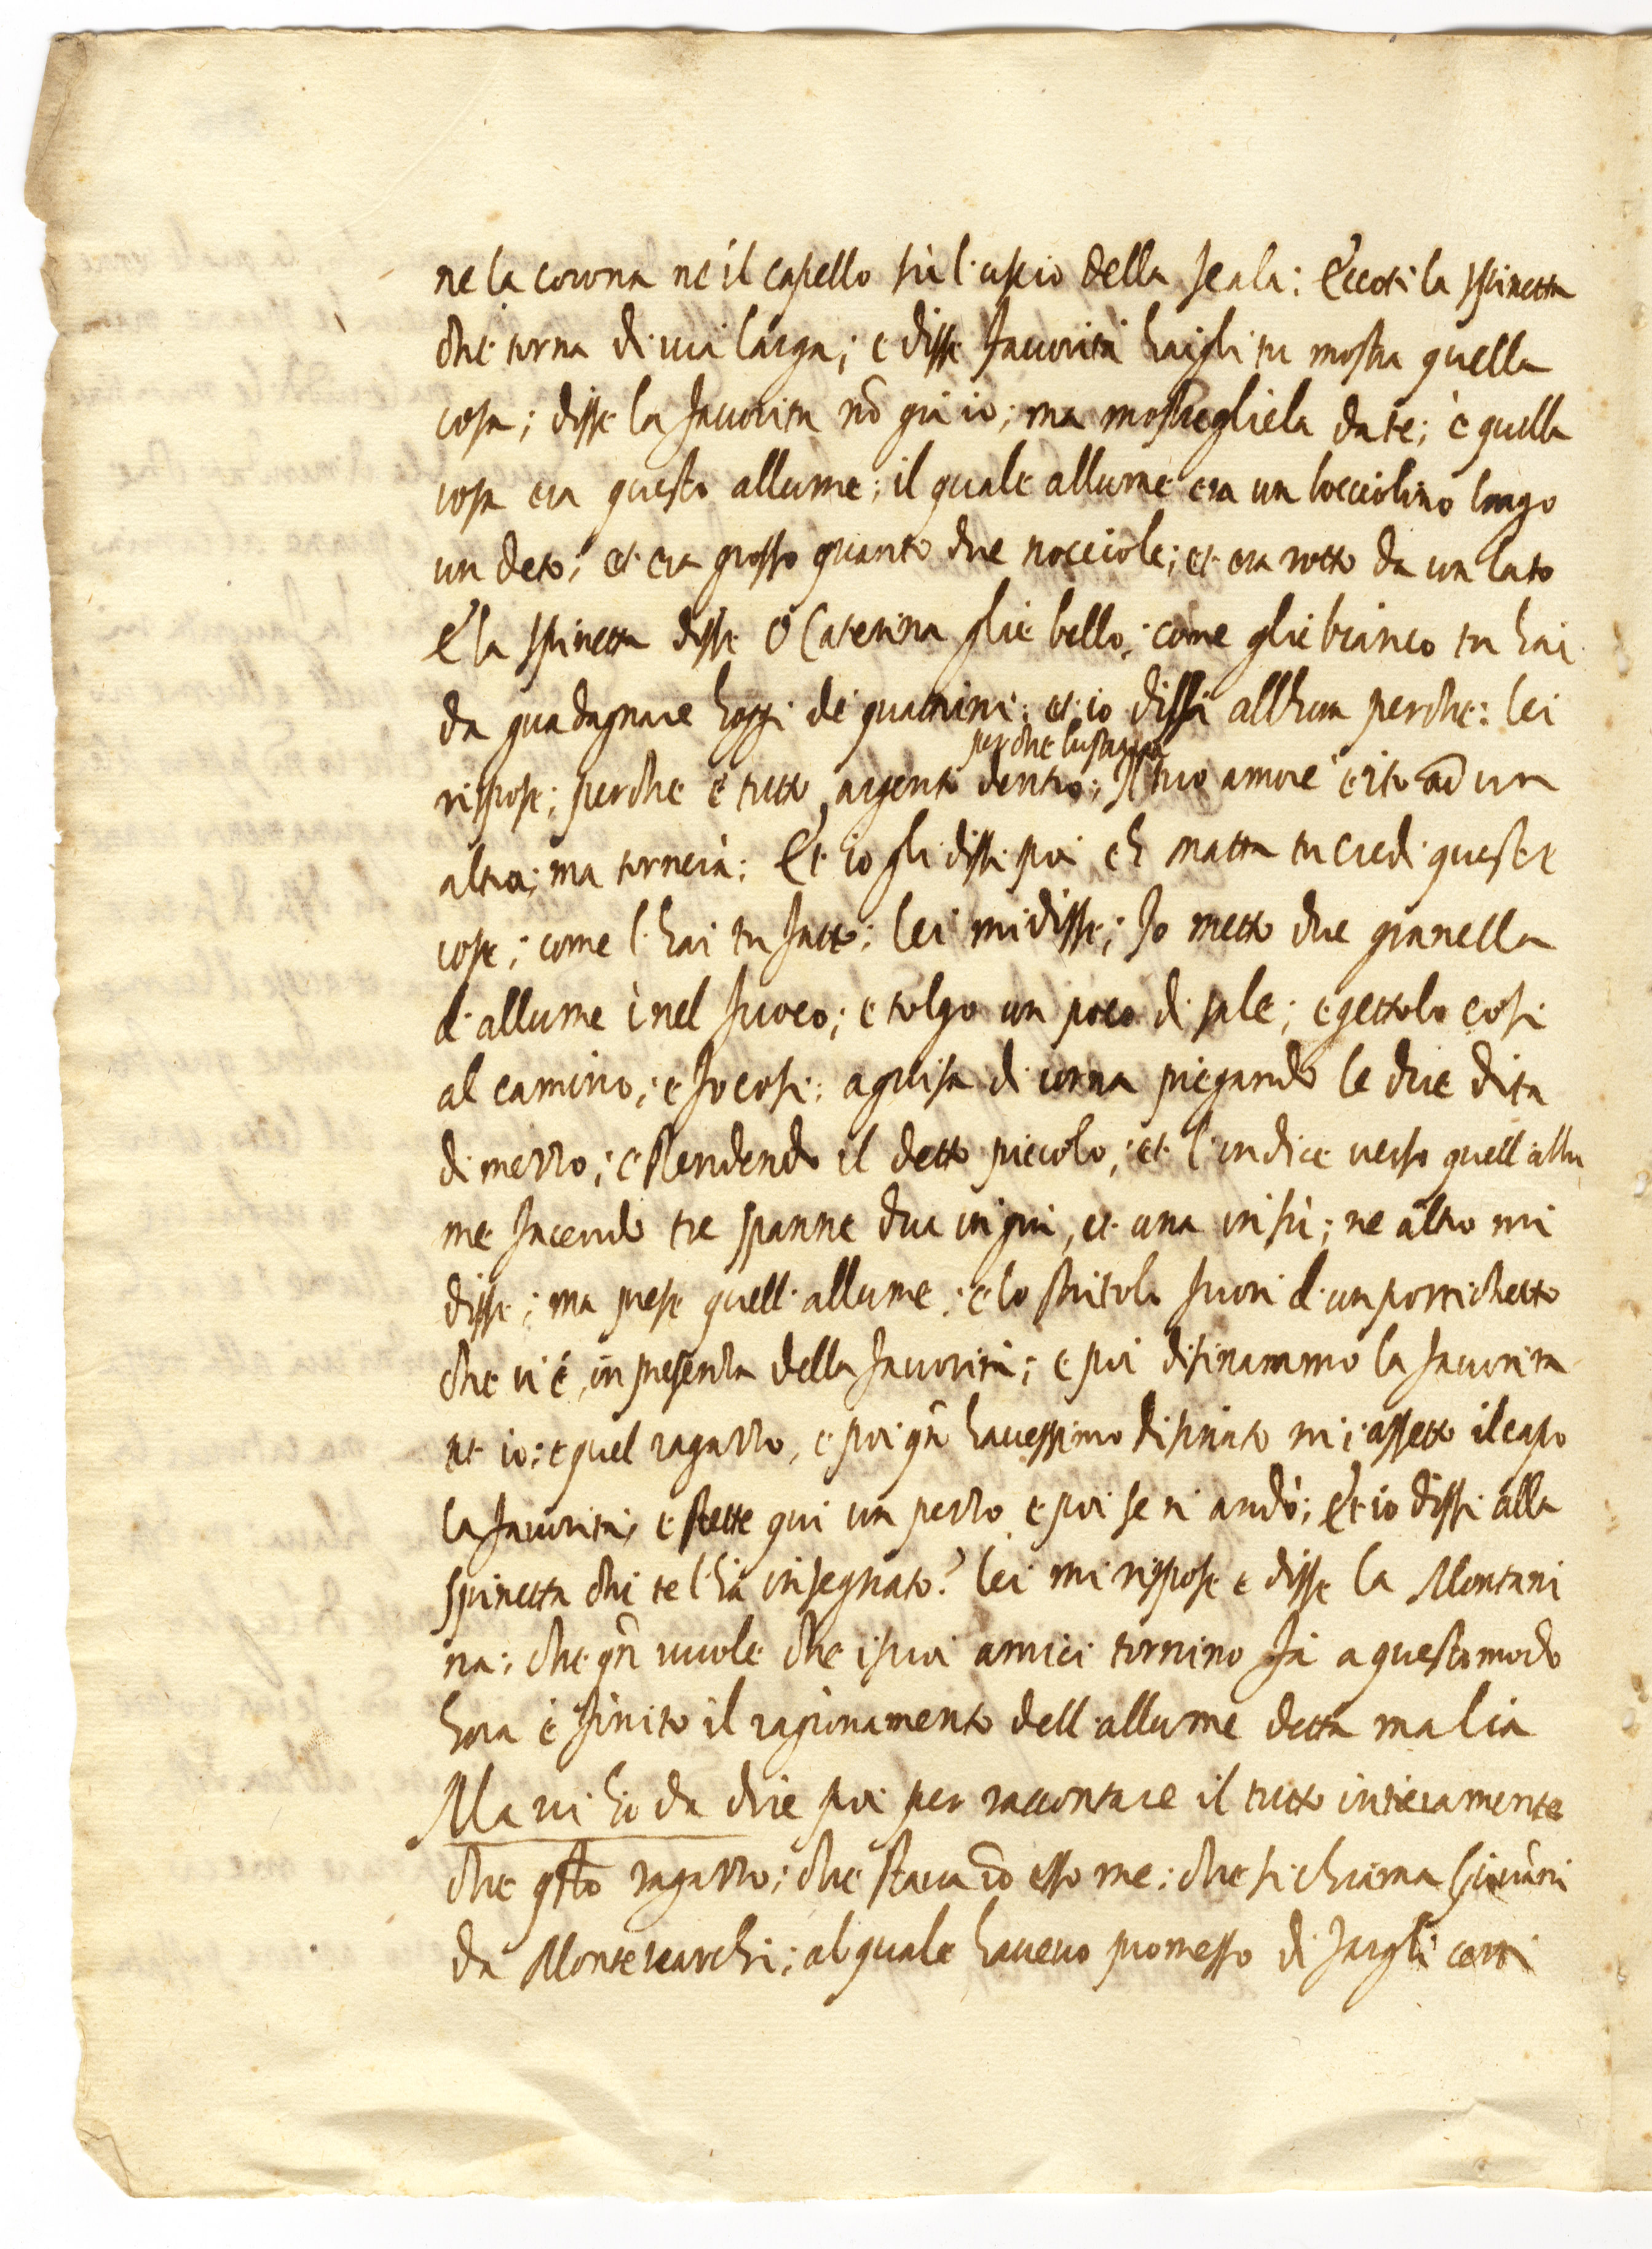 ne la corona ne il capello sù l'uscio della scala: Eccoti la spinetta
che torna di via larga; e disse fauorita haigli tu mostra quella
cosa; disse la fauorita nō già io; ma mostragliela da te; è quella
cosa era questo allume; il quale allume era un bocciolino lungo
un deto; et era grosso quanto due nocciole; et era rotto da un lato
E la spinetta disse ò Caterina glie bello; come glie bianco tu hai
da guadagnare hoggi de quatrini; et io dissi allhora perche: lei
perche
rispose; perche è tutto argento dentro; Il tuo amore è ito ad un
altra; ma tornerà: Et io gli dissi poi eh matta tu credi queste
cose; come l'hai tu fatto: lei mi disse; Io metto due granella
d'allume inel fuoco; e tolgo un poco di sale; e gettolo cosi
al camino; e fo cosi: a guisa di corna piegando le due dita
di mezzo; e stendendo il detto piccolo; et l'indice verso quell'allu
me facendo tre spanne due in giù, et una in sù; ne altro mi
disse; ma prese quell'allume; e lo stritolò fuori d'un portichetto
che vi é, in presenza della fauorita; e poi disinammo la fauorita
et io; e quel ragazzo, e poi qñ hauessimo disinato mi assettò il capo
la fauorita, e stette qui un pezzo e poi se n'andò; Et io dissi alla
spinetta chi te l'hà insegnato? lei mi rispose e disse la Montani
na; che qñ vuole che i suoi amici tornino fà a questo modo
hora è finito il ragionamento dell'allume detta malia
Ma vi hò da dire poi per raccontare il tutto intieramente
che qsto ragazzo; che staua cō esso me; che si chiama Giouāni
da Monteuarchi; al quale haueuo promesso di fargli certi